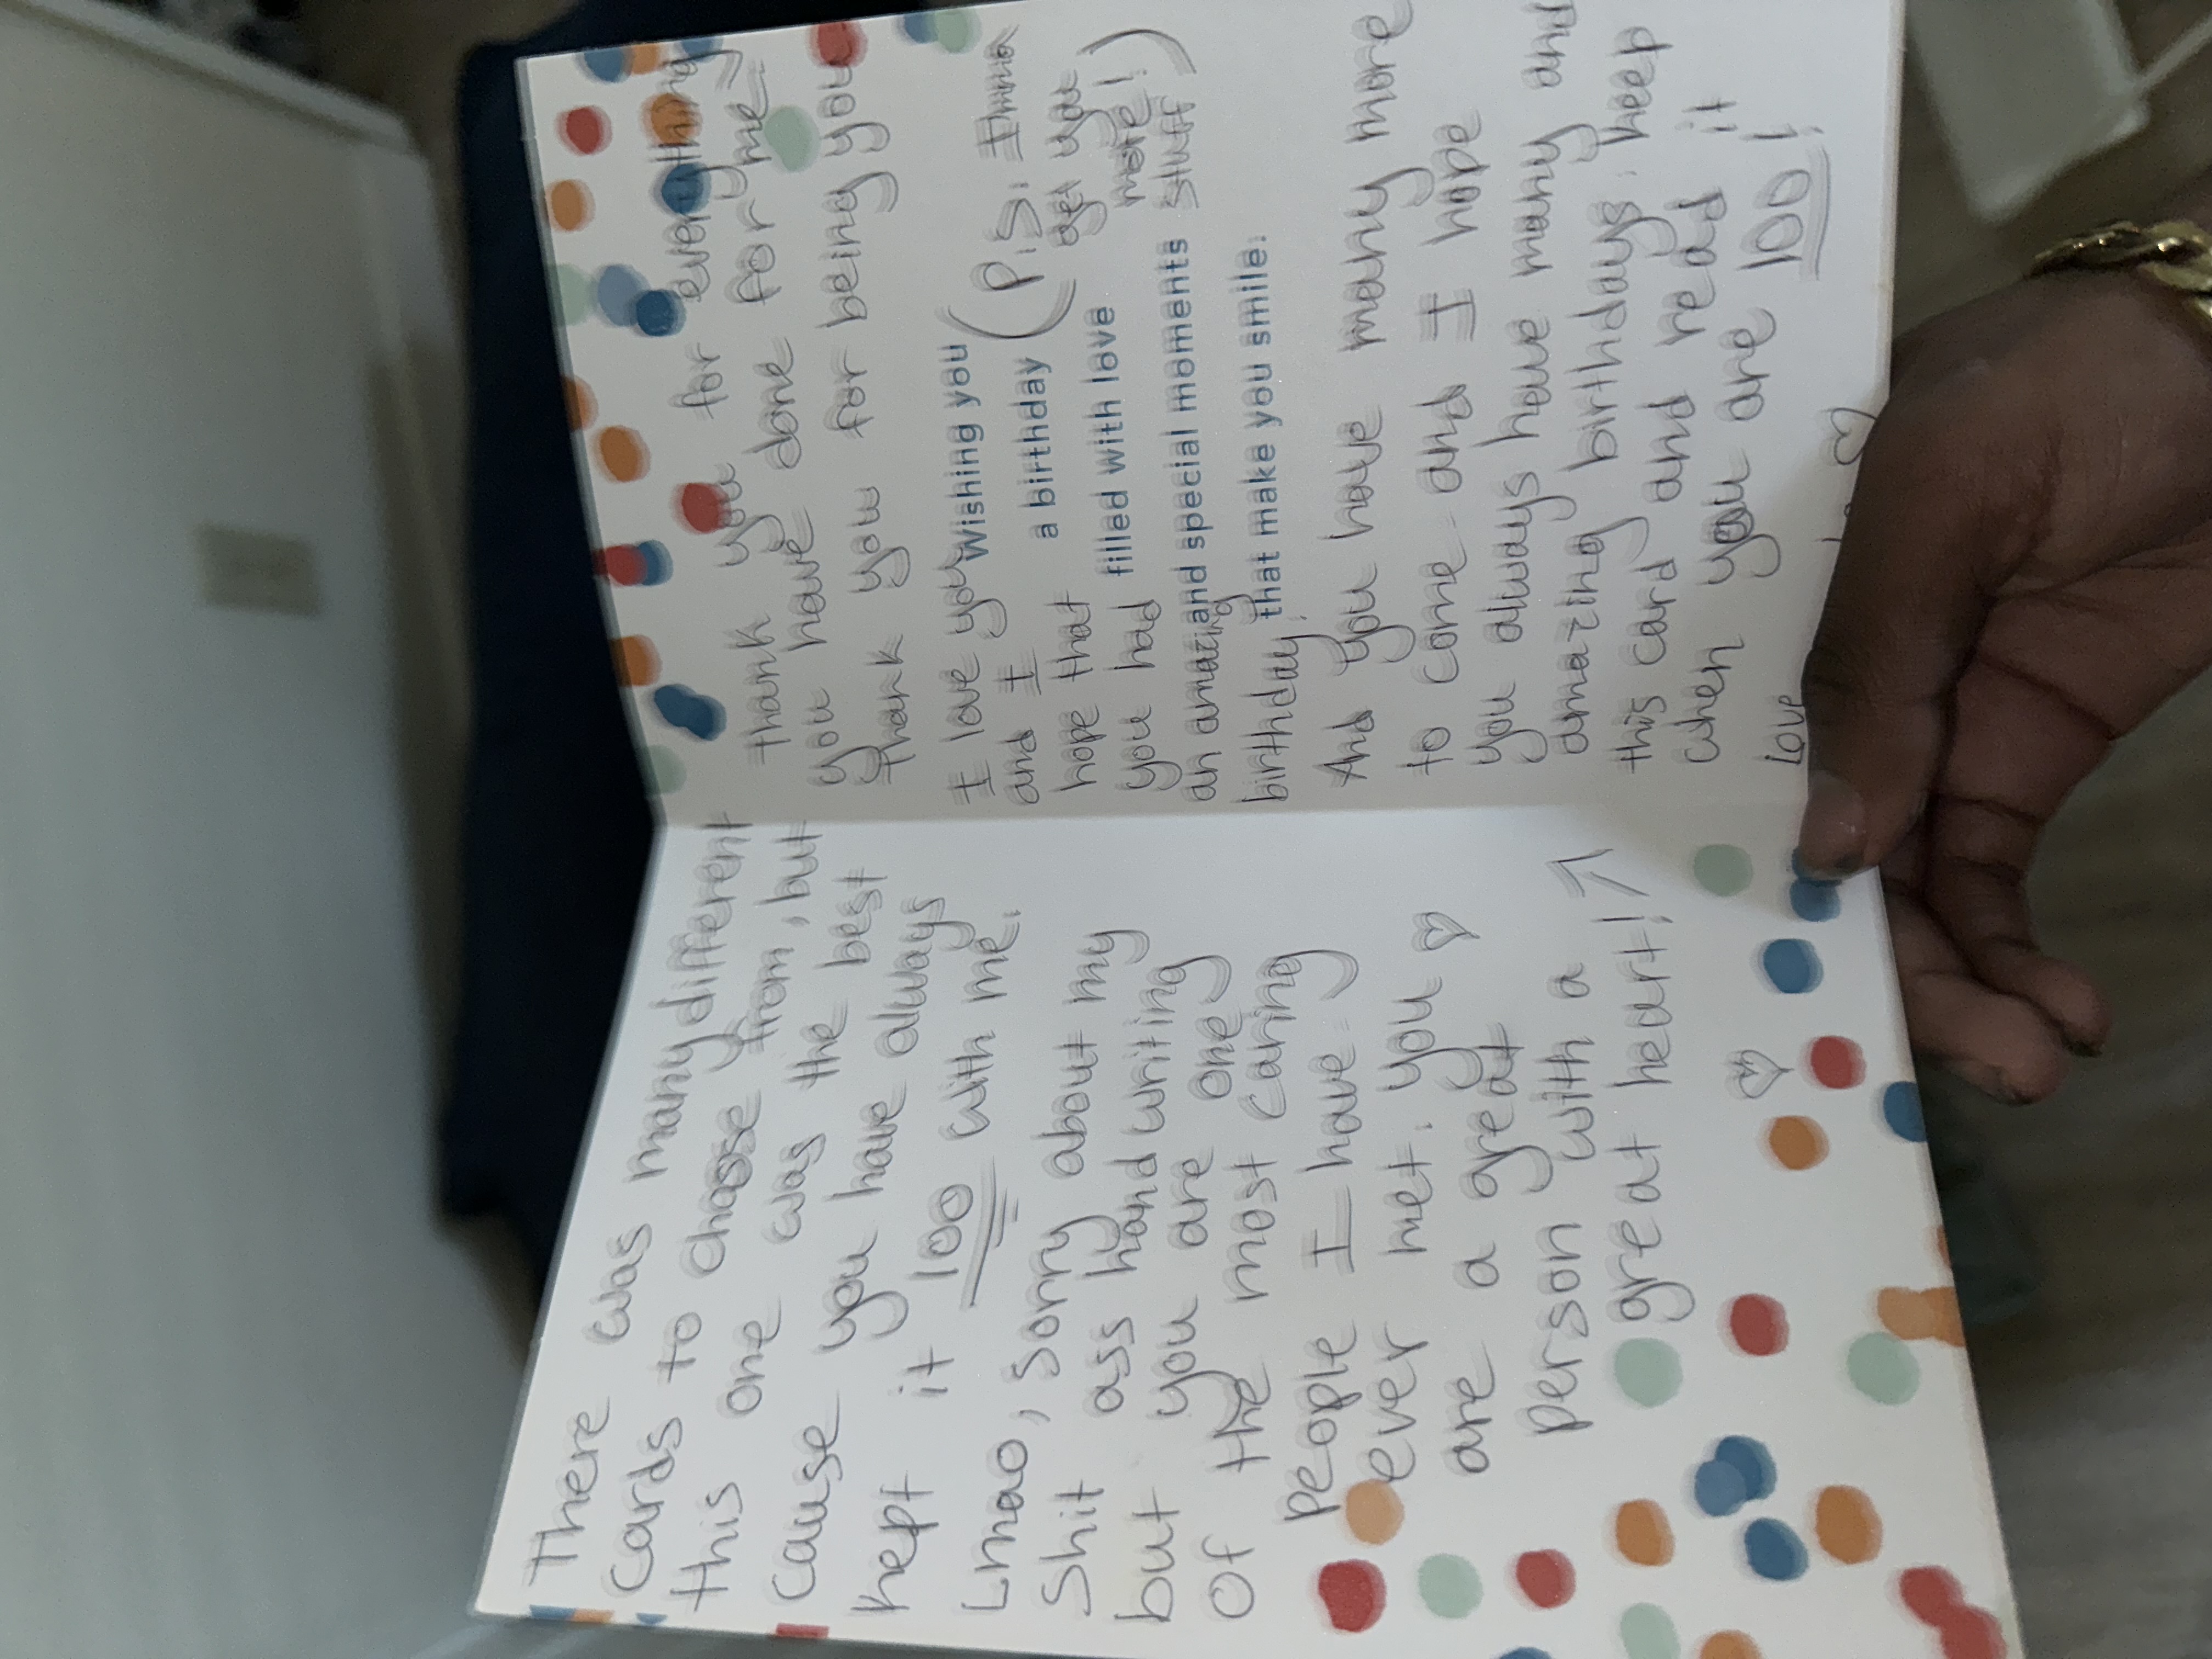 There was many different
cards to choose from, but
this one was the best
cause you have always
kept it 100 with me.
Lmao, sorry about my
Shit ass handwriting
but you are one
Of the most caring
people I have
ever met. you
are a great
person with a
great heart!
thank you for everything
you have done for me
thank you for being you
I love you
and I
hope that
you had
an amazing
birthday.
Wishing you
a birthday
filled with love
and special moments
that make you smile.
(P.S. Imma
get you
more!
stuff)
And you have many more
to come and I hope
you always have many and
amazing birthdays. keep
this card and read it
when you are 100!
Love